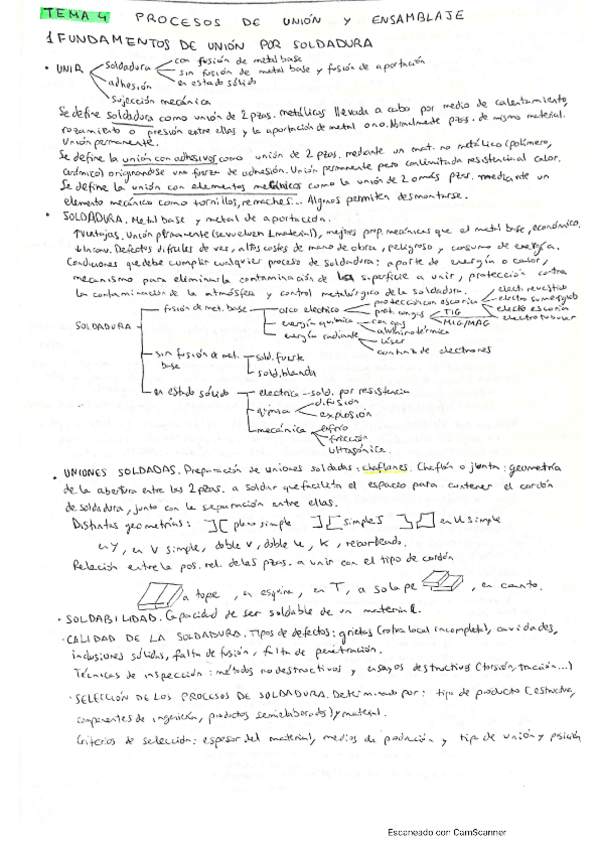 TEMA 4 PROCESOS DE UNIÓN Y ENSAMBLAJE
1 FUNDAMENTOS DE UNIÓN POR SOLDADURA
• UNIR soldadura con fusión de metal base
sin fusión de metal base y fusión de aportación
en estado sólido
adhesión
sujección mecánica
Se define soldadura como unión de 2 pzas. metálicas llevada a cabo por medio de calentamiento,
rozamiento o presión entre ellas y la aportación de metal o no. Normalmente pzas. de mismo material.
Unión permanente.
Se define la unión con adhesivos como unión de 2 pzas. mediante un mat. no metálico (polímero,
cerámico) originándose una fuerza de adhesión. Unión permanente pero con limitada resistencia al calor.
Se define la unión con elementos mecánicos como la unión de 2 o más pzas. mediante un
elemento mecánico como tornillos, remaches... Algunos permiten desmontarse.
• SOLDADURA. Metal base y metal de aportación.
Ventajas. Unión permanente (se vuelven 1 material), mejores prop. mecánicas que el metal base, económico.
Inconv. Defectos difíciles de ver, altos costes de mano de obra, peligroso y consumo de energía.
Condiciones que debe cumplir cualquier proceso de soldadura: aporte de energía o calor,
mecanismo para eliminar la contaminación de la superficie a unir, protección contra
la contaminación de la atmósfera y control metalúrgico de la soldadura.
SOLDADURA
fusión de met. base
arco eléctrico
protección con escoria
elect. revestido
electro sumergido
electro escoria
electro tubular
prot. con gas
TIG
MIG/MAG
energía química
con gas
aluminotérmica
energía radiante
láser
con haz de electrones
sin fusión de met. base
sold. fuerte
sold. blanda
en estado sólido
eléctrica - sold. por resistencia
química
difusión
explosión
mecánica
en frío
fricción
ultrasónica.
• UNIONES SOLDADAS. Preparación de uniones soldadas: chaflanes. Chaflán o junta: geometría
de la abertura entre las 2 pzas. a soldar que facilita el espacio para contener el cordón
de soldadura, junto con la separación entre ellas.
Distintas geometrías: plano simple simple J en U simple
en Y, en V simple, doble V, doble U, K, rebordeado.
Relación entre la pos. rel. de las pzas. a unir con el tipo de cordón
a tope, en esquina, en T, a solape, en canto.
• SOLDABILIDAD. Capacidad de ser soldable de un material.
• CALIDAD DE LA SOLDADURA. Tipos de defectos: grietas (rotura local incompleta), cavidades,
inclusiones sólidas, falta de fusión, falta de penetración.
Técnicas de inspección: métodos no destructivos y ensayos destructivos (torsión, tracción...)
• SELECCIÓN DE LOS PROCESOS DE SOLDADURA. Determinado por: tipo de producto (estructura,
componentes de ingeniería, productos semielaborados) y material.
Criterios de selección: espesor del material, medios de producción y tipo de unión y posición
Escaneado con CamScanner